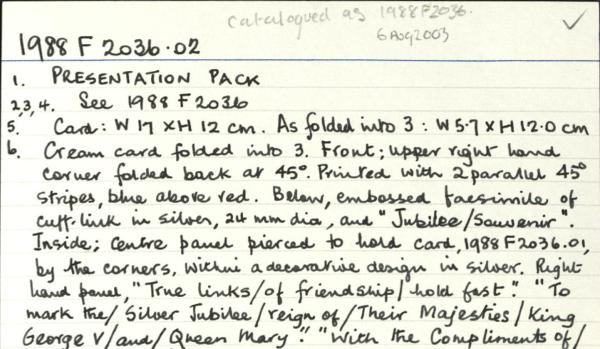 catalogued as 1988F2036.
6 Aug 2003
1988 F 2036.02
1. PRESENTATION PACK
2,3,4. See 1988 F 2036
5. Card: W 17 x H 12 cm. As folded into 3: W 5.7 x H 12.0 cm
6. Cream card folded into 3. Front; upper right hand
corner folded back at 45°. Printed with 2 parallel 45°
stripes, blue above red. Below, embossed facsimile of
cuff-link in silver, 24 mm dia, and "Jubilee/Souvenir".
Inside; centre panel pierced to hold card, 1988F2036.01,
by the corners, within a decorative design in silver. Right
hand panel, "True links/of friendship/hold fast." "To
mark the/Silver Jubilee/reign of/Their Majesties/King
George V/and/Queen Mary". "With the Compliments of/